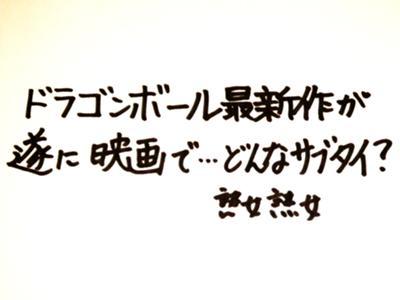 ドラゴンボール最新作が
遂に映画で…どんなサブタイ?
熟女熟女